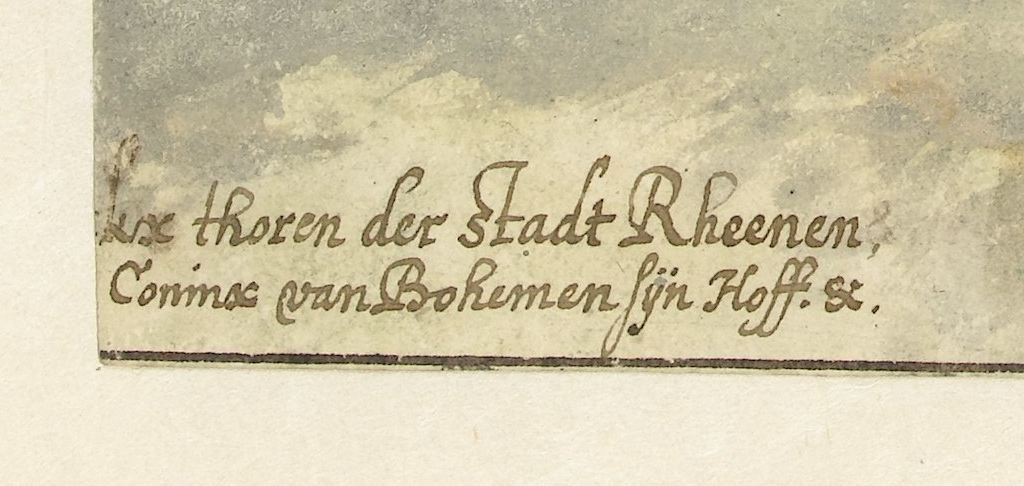 thoren der stadt Rheenen,
Coninx van Bohemen sijn Hoff. &.